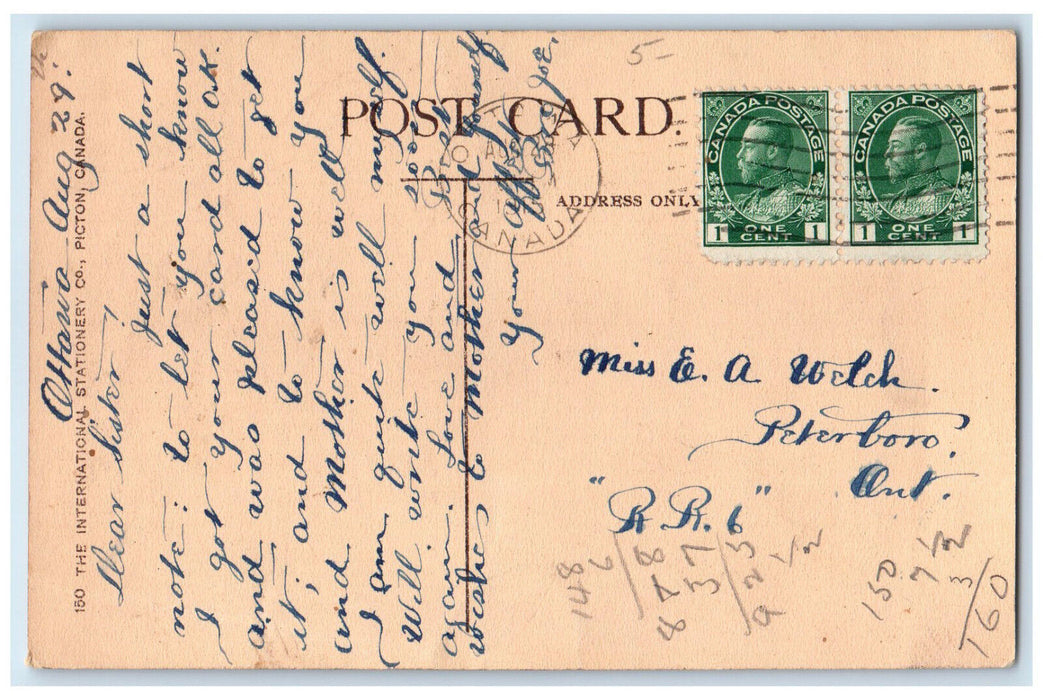 POST CARD.
ADDRESS ONLY
150 THE INTERNATIONAL STATIONERY CO., PICTON, CANADA.
Ottawa Aug 29.
Dear Sister,
Just a short
note: to let you know
I got your card all O.K.
and was pleased to get
it; and to know you
and Mother is well
I am quite well myself.
Will write you soon
again. Love and Best
wishes to Mother and
Your
Joe.
CANADA
CANADA POSTAGE
1 ONE CENT 1
CANADA POSTAGE
1 ONE CENT 1
Miss E. A. Welch.
Peterboro,
Ont.
"R.R. 6"
5-
148
6
878
37
923
1/2
150
7 1/2
3
160